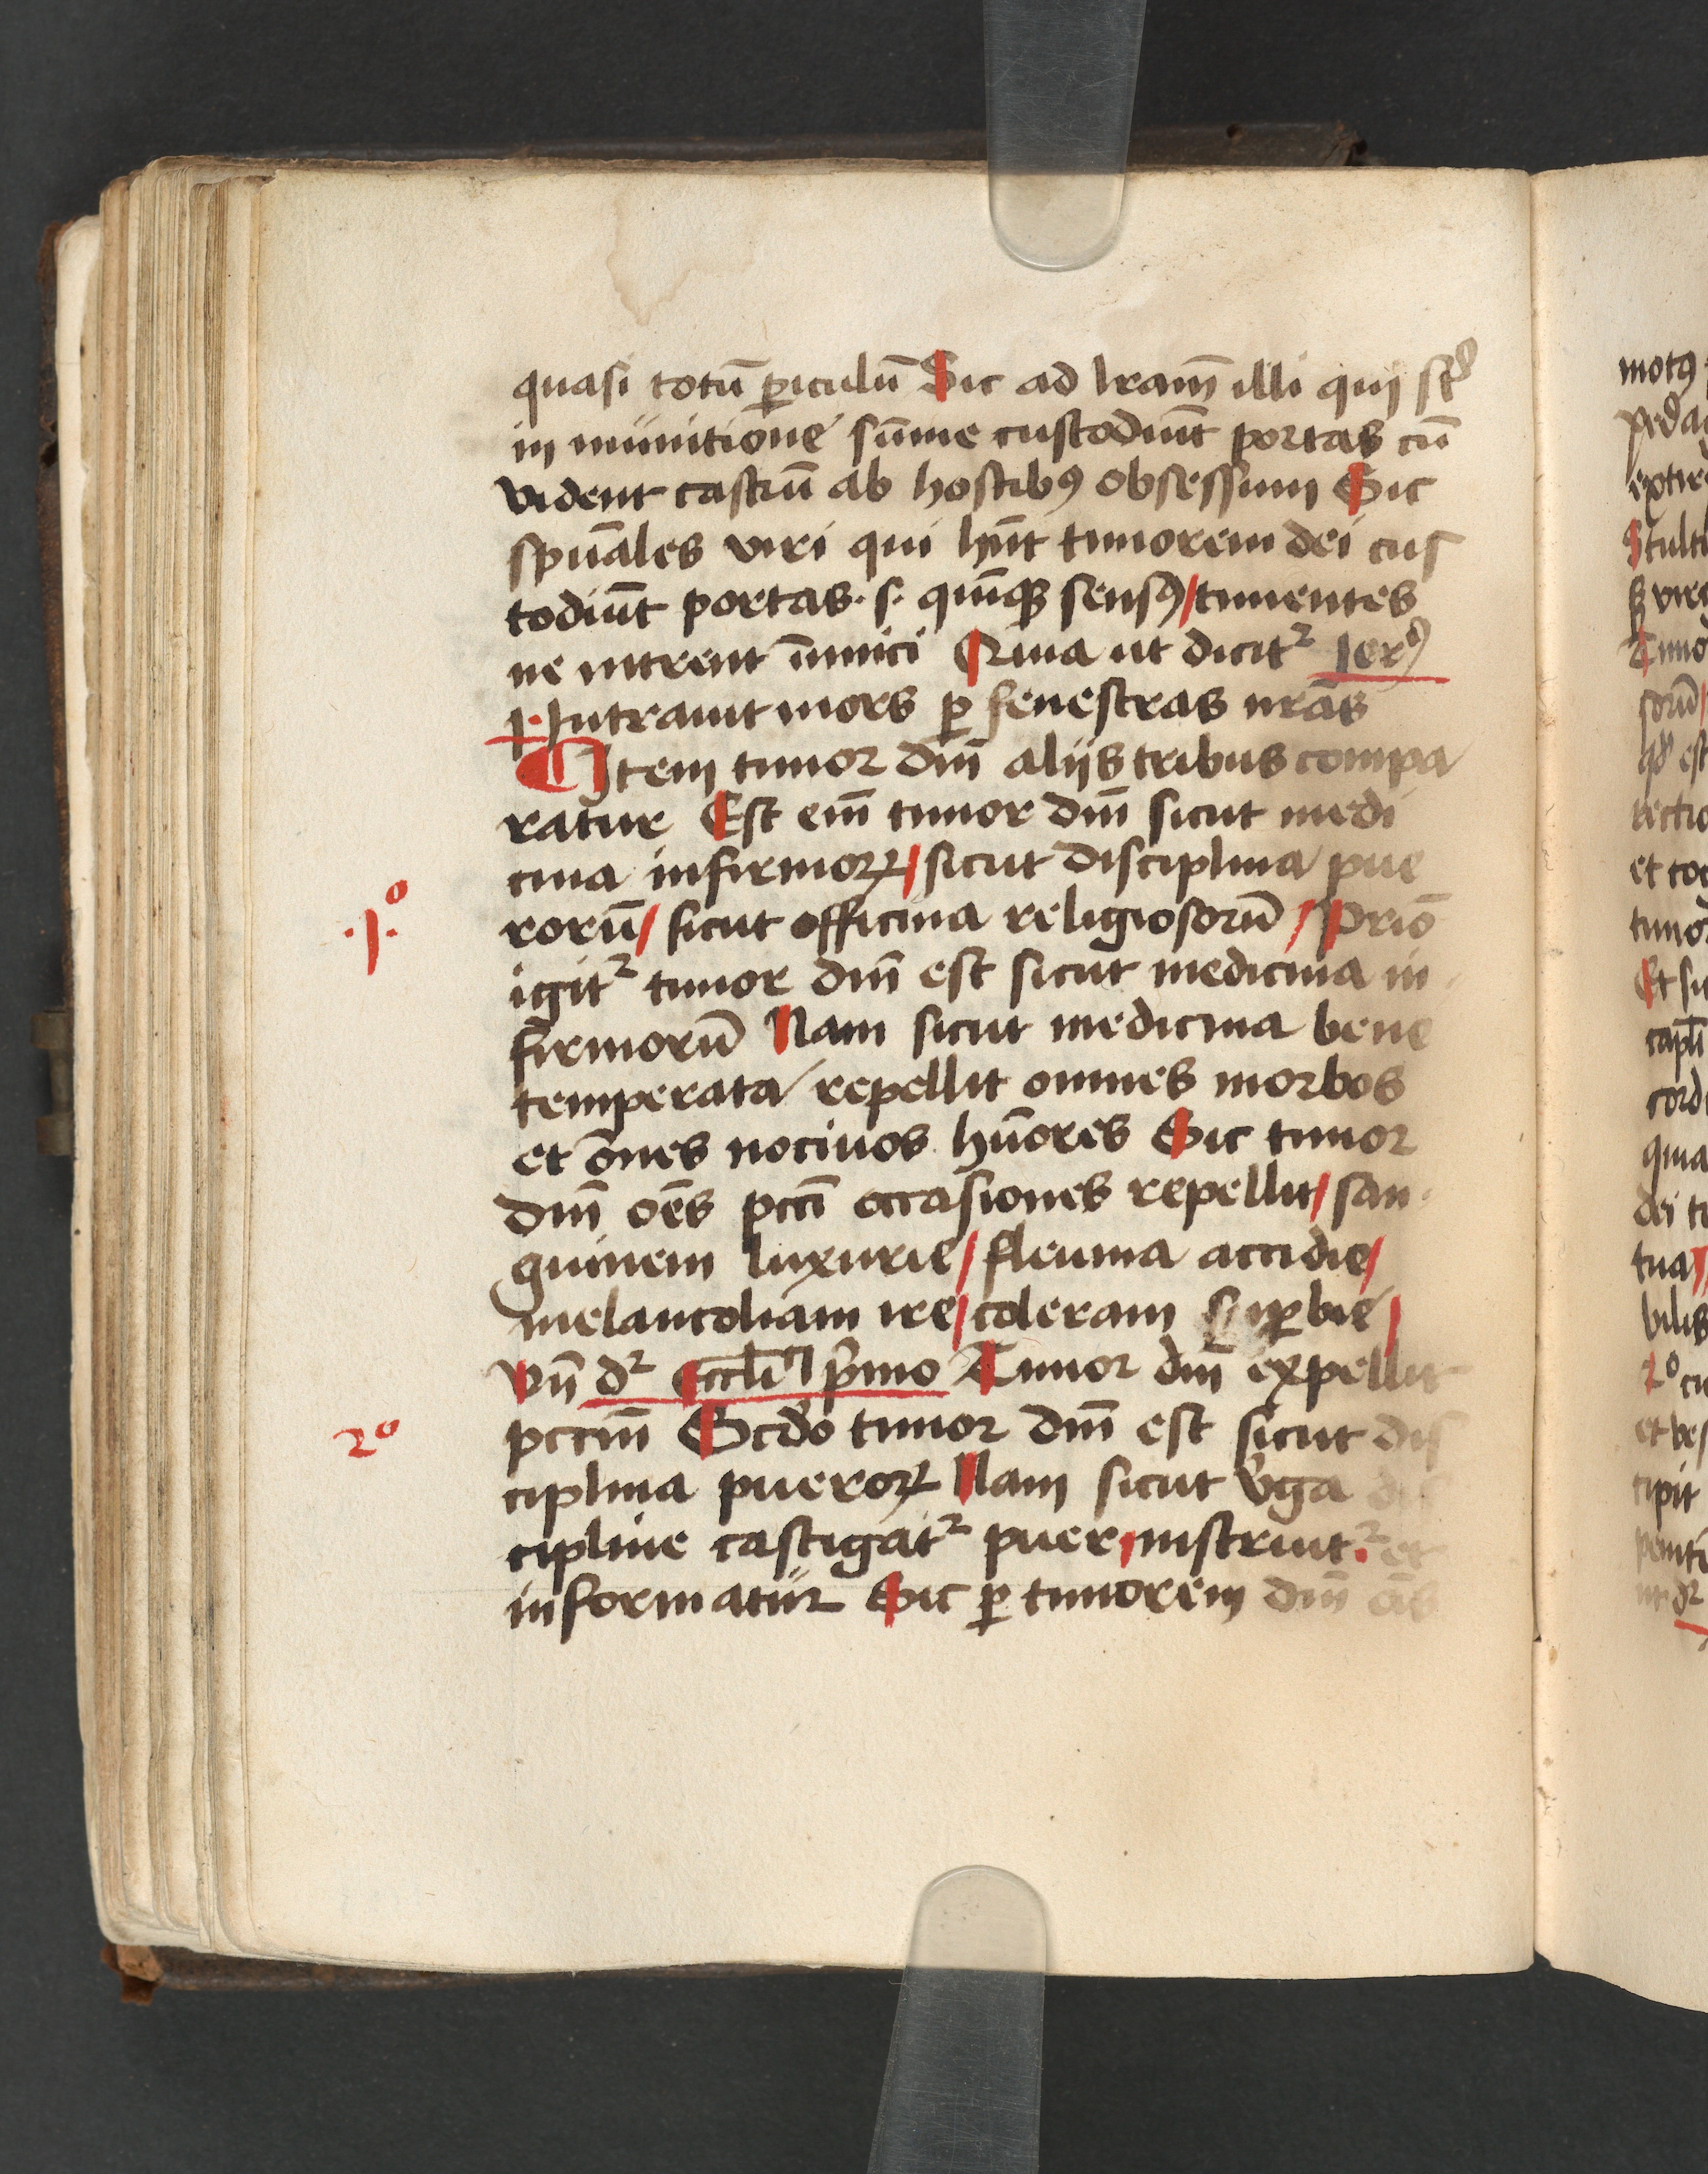 quasi totū ꝑiculū Sic ad lr̄am̄ illi qui st̄
in munitione sūme custodiūt portas cū
vident castrū ab hostibꝰ obsessum Sic
spūales viri qui hn̄t timorem dei cus
todiūt portas · s · quīqꝫ sensꝰ / timentes
ne intrent īimici Quia ut dicitᷣ Ierꝰ
1· Intrauit mors ꝑ fenestras nr̄as
¶ Item timor dnī alijs tribus compa
ratur Est enī timor dnī sicut medi
cina infirmoꝝ / sicut disciplina pue
.1.º
rorū / sicut officina religiosorū / Primō
igitᷣ timor dnī est sicut medicina in
firmorū Nam sicut medicina bene
temperata repellit omnes morbos
et ōnes nociuos hūores Sic timor
dnī oēs pccī occasiones repellit / san
guinem luxurie / fleuma accidie /
melancoliam ire / coleram suꝑbie /
Vn̄ dᷣ eccli pͥmo Timor dnī expellit
2º
pccm̄ Scd̓o timor dnī est sicut dis
ciplina pueroꝝ Nam sicut v̓ga dis
cipline castigatᷣ puer / instruitᷣ et
informatur Sic ꝑ timorem dnī
motꝰ
Stulti
et
timor
Et
quia
dei
tua
2º
cipit